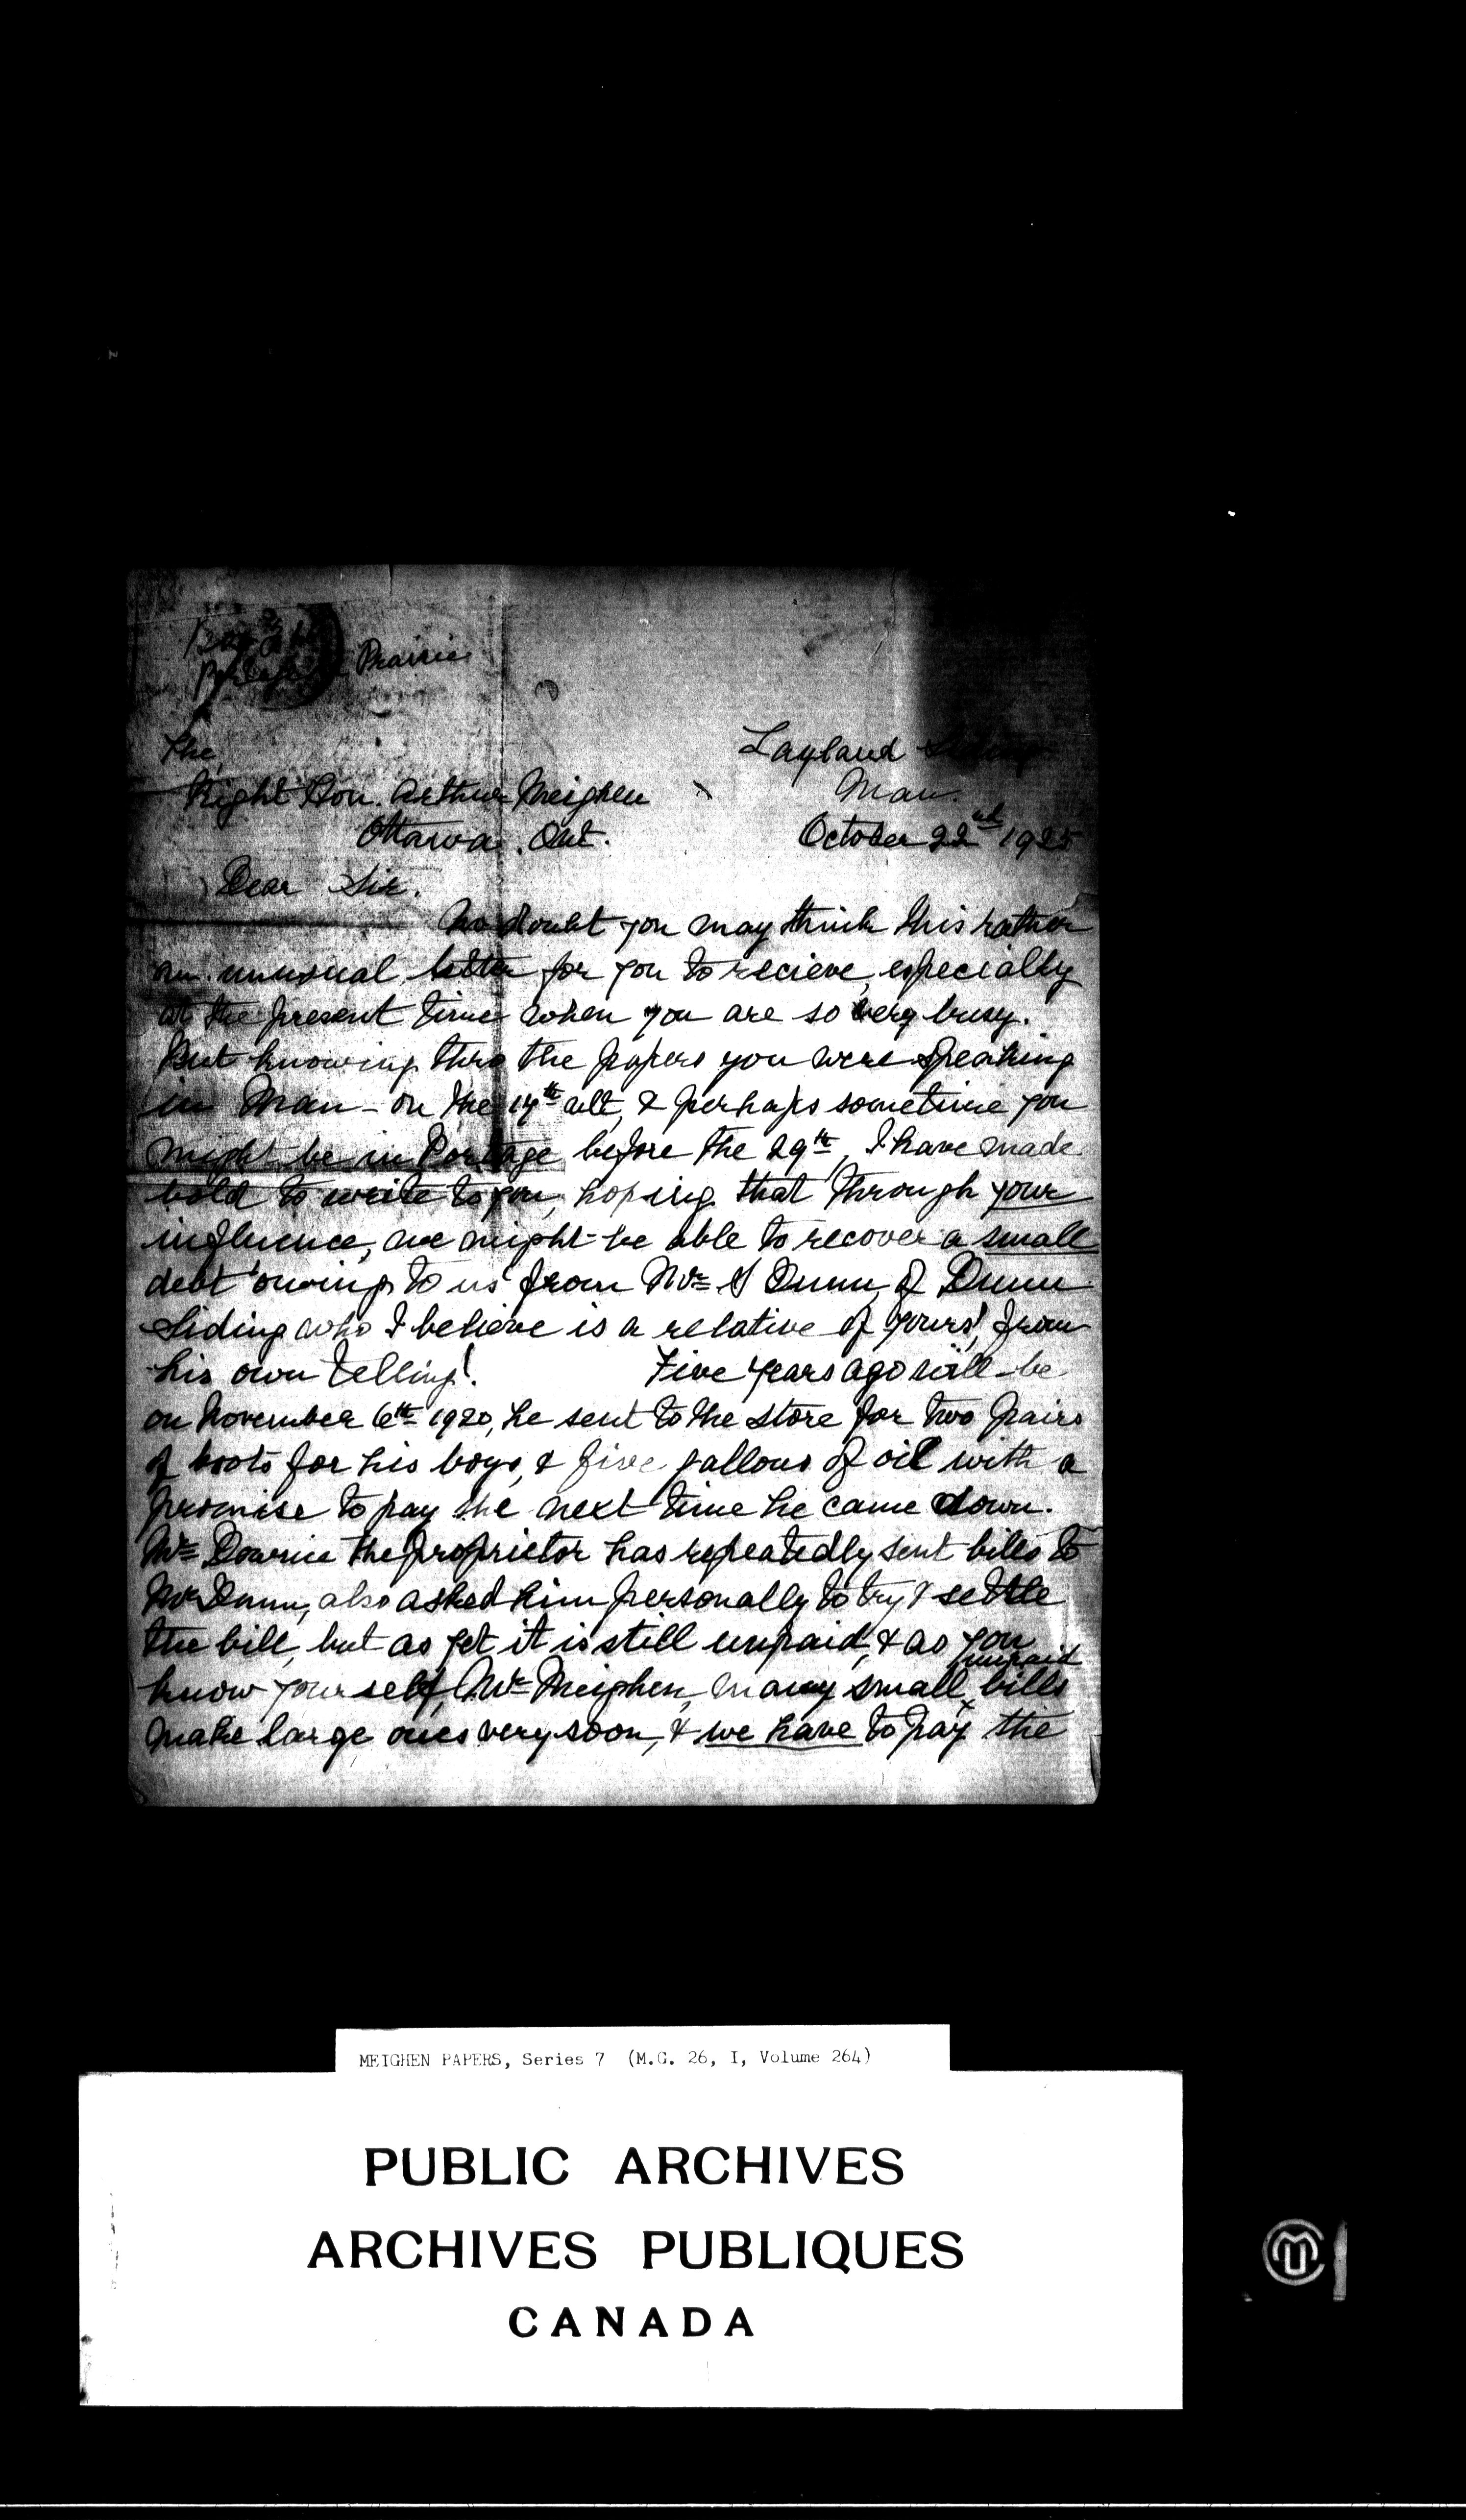 Prairie
The,
Layland
Right Hon. Arthur Meighen
Man.
Ottawa. Ont.
October 22nd 1925
Dear Sir.
No doubt you may think this rather
an unusual letter for you to recieve, especially
at the present time when you are so very busy.
But knowing thro the papers you were speaking
in Man - on the ult, & perhaps sometime you
might be in Portage before the 29th, I have made
bold to write to you, hoping that through your
influence, we might be able to recover a small
debt owing to us from Mr S Dunn, of Dunn
Siding who I believe is a relative of yours!, from
his own telling!. Five years ago will be
on November 6th 1920, he sent to the store for two pairs
of boots for his boys, & five gallons of oil with a
promise to pay the next time he came down.
Mr Downie the proprietor has repeatedly sent bills to
Mr Dunn, also asked him personally to try & settle
the bill, but as yet it is still unpaid, & as you
unpaid
know yourself, Mr Meighen, many small bills
make large ones very soon, & we have to pay the
MEIGHEN PAPERS, Series 7 (M.G. 26, I, Volume 264)
PUBLIC ARCHIVES
ARCHIVES PUBLIQUES
CANADA